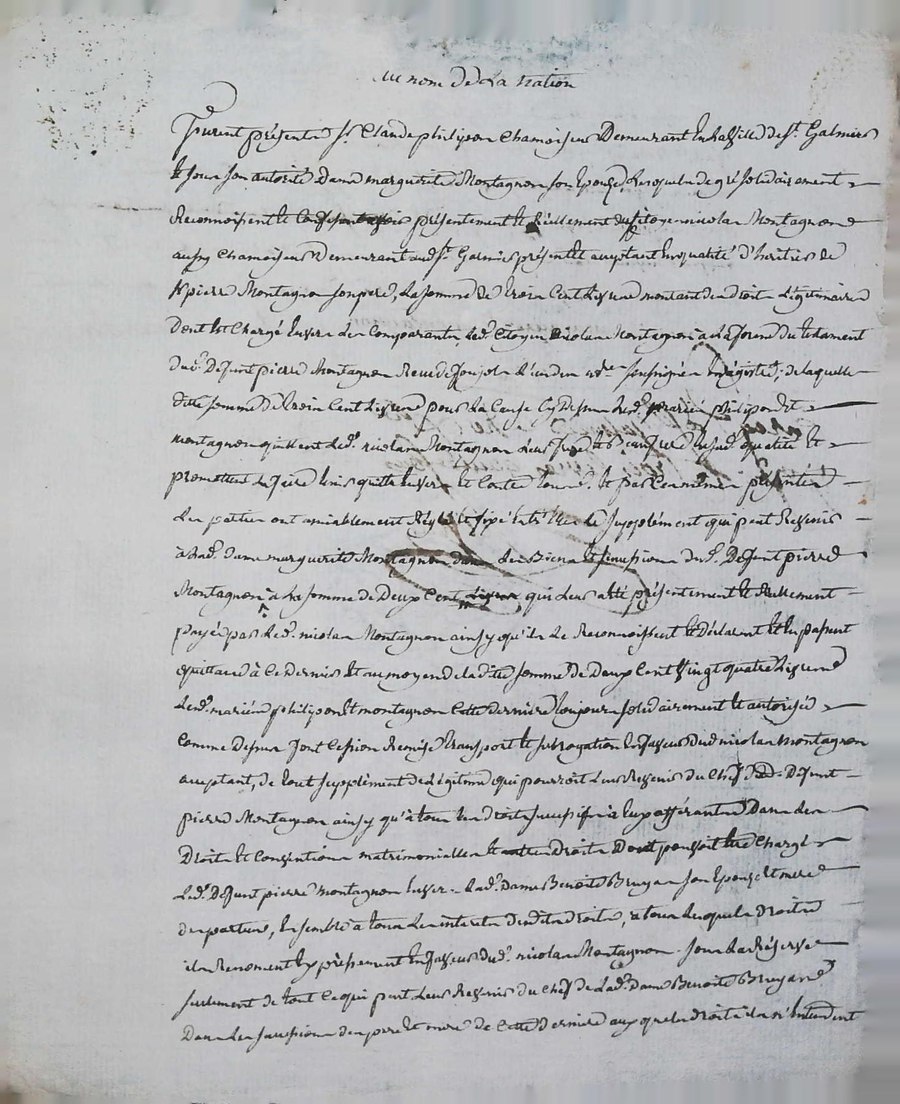 au nom de la nation
Furent présents Sr. Claude philipon Chamoiseur Demeurant En la Ville de St. Galmier
Et sous son autorité Dame marguerite Montagnon son Epouse, Lesquels de gré solidairement
Reconnoissent et présentement et Réellement du Citoyen nicolas Montagnon
aussy Chamoiseur Demeurant aud. St. Galmier présent Et acceptant En qualité d'heritier de
Sr. pierre Montagnon son pere, La somme de trois Cent Livres montant des droits Légitimaires
Dont Est Chargé Envers Les Comparants, led. Citoyen nicolas Montagnon à la forme du testament
dud. Défunt pierre Montagnon Reçu de L'un des nres. soussignés Enregistré; de laquelle
ditte somme de trois Cent Livres pour la Cause Cy dessus Led. mariés philipon Et
montagnon quittent Led. nicolas Montagnon Leur frere Et Beaufrere Esd. qualités Et
promettent Le faire tenir quitte Envers Et Contre tous. Et par Ces mêmes présentes
Les parties ont amiablement Réglé Et fixé Entr'Elles Le Supplément qui peut Revenir
à lad. dame marguerite Montagnon dans Les Biens Et succession du d. Défunt pierre
Montagnon à la somme de Deux Cent qui Leur a été présentement Et Réellement
payée par Led. nicolas Montagnon ainsy qu'ils Le Reconnoissent Et Déclarent Et En passent
quittance à Ce dernier Et au moyen de laditte somme de Deux Cent Vingt quatre Livres
Led. mariés philipon Et montagnon Cette dernière toujours solidairement Et autorisée
Comme dessus font Cession Remise transport Et subrogation En faveur dud. nicolas Montagnon
acceptant, de tout supplément de Légitime qui pourroit Leur Revenir du Chef dud. Défunt
pierre Montagnon ainsy qu'à tous Les droits successifs à Eux afférants Dans Les
Droits Et Conventions matrimonialles Et autres Droits Dont pouvoit être Chargé
Led. Défunt pierre montagnon Envers lad. Dame Benoite Bruyas son Epouse Et mere
des parties, Ensemble à tous Les interets desdits droits, à tous Lesquels droits
ils Renoncent Expréssement En faveur dud. nicolas Montagnon. sous la Réserve
seulement de tout Ce qui peut Leur Revenir du Chef de Lad. Dame Benoite Bruyas
Dans Les successions des pere Et mere de Cette dernière auxquels droits ils n'Entendent